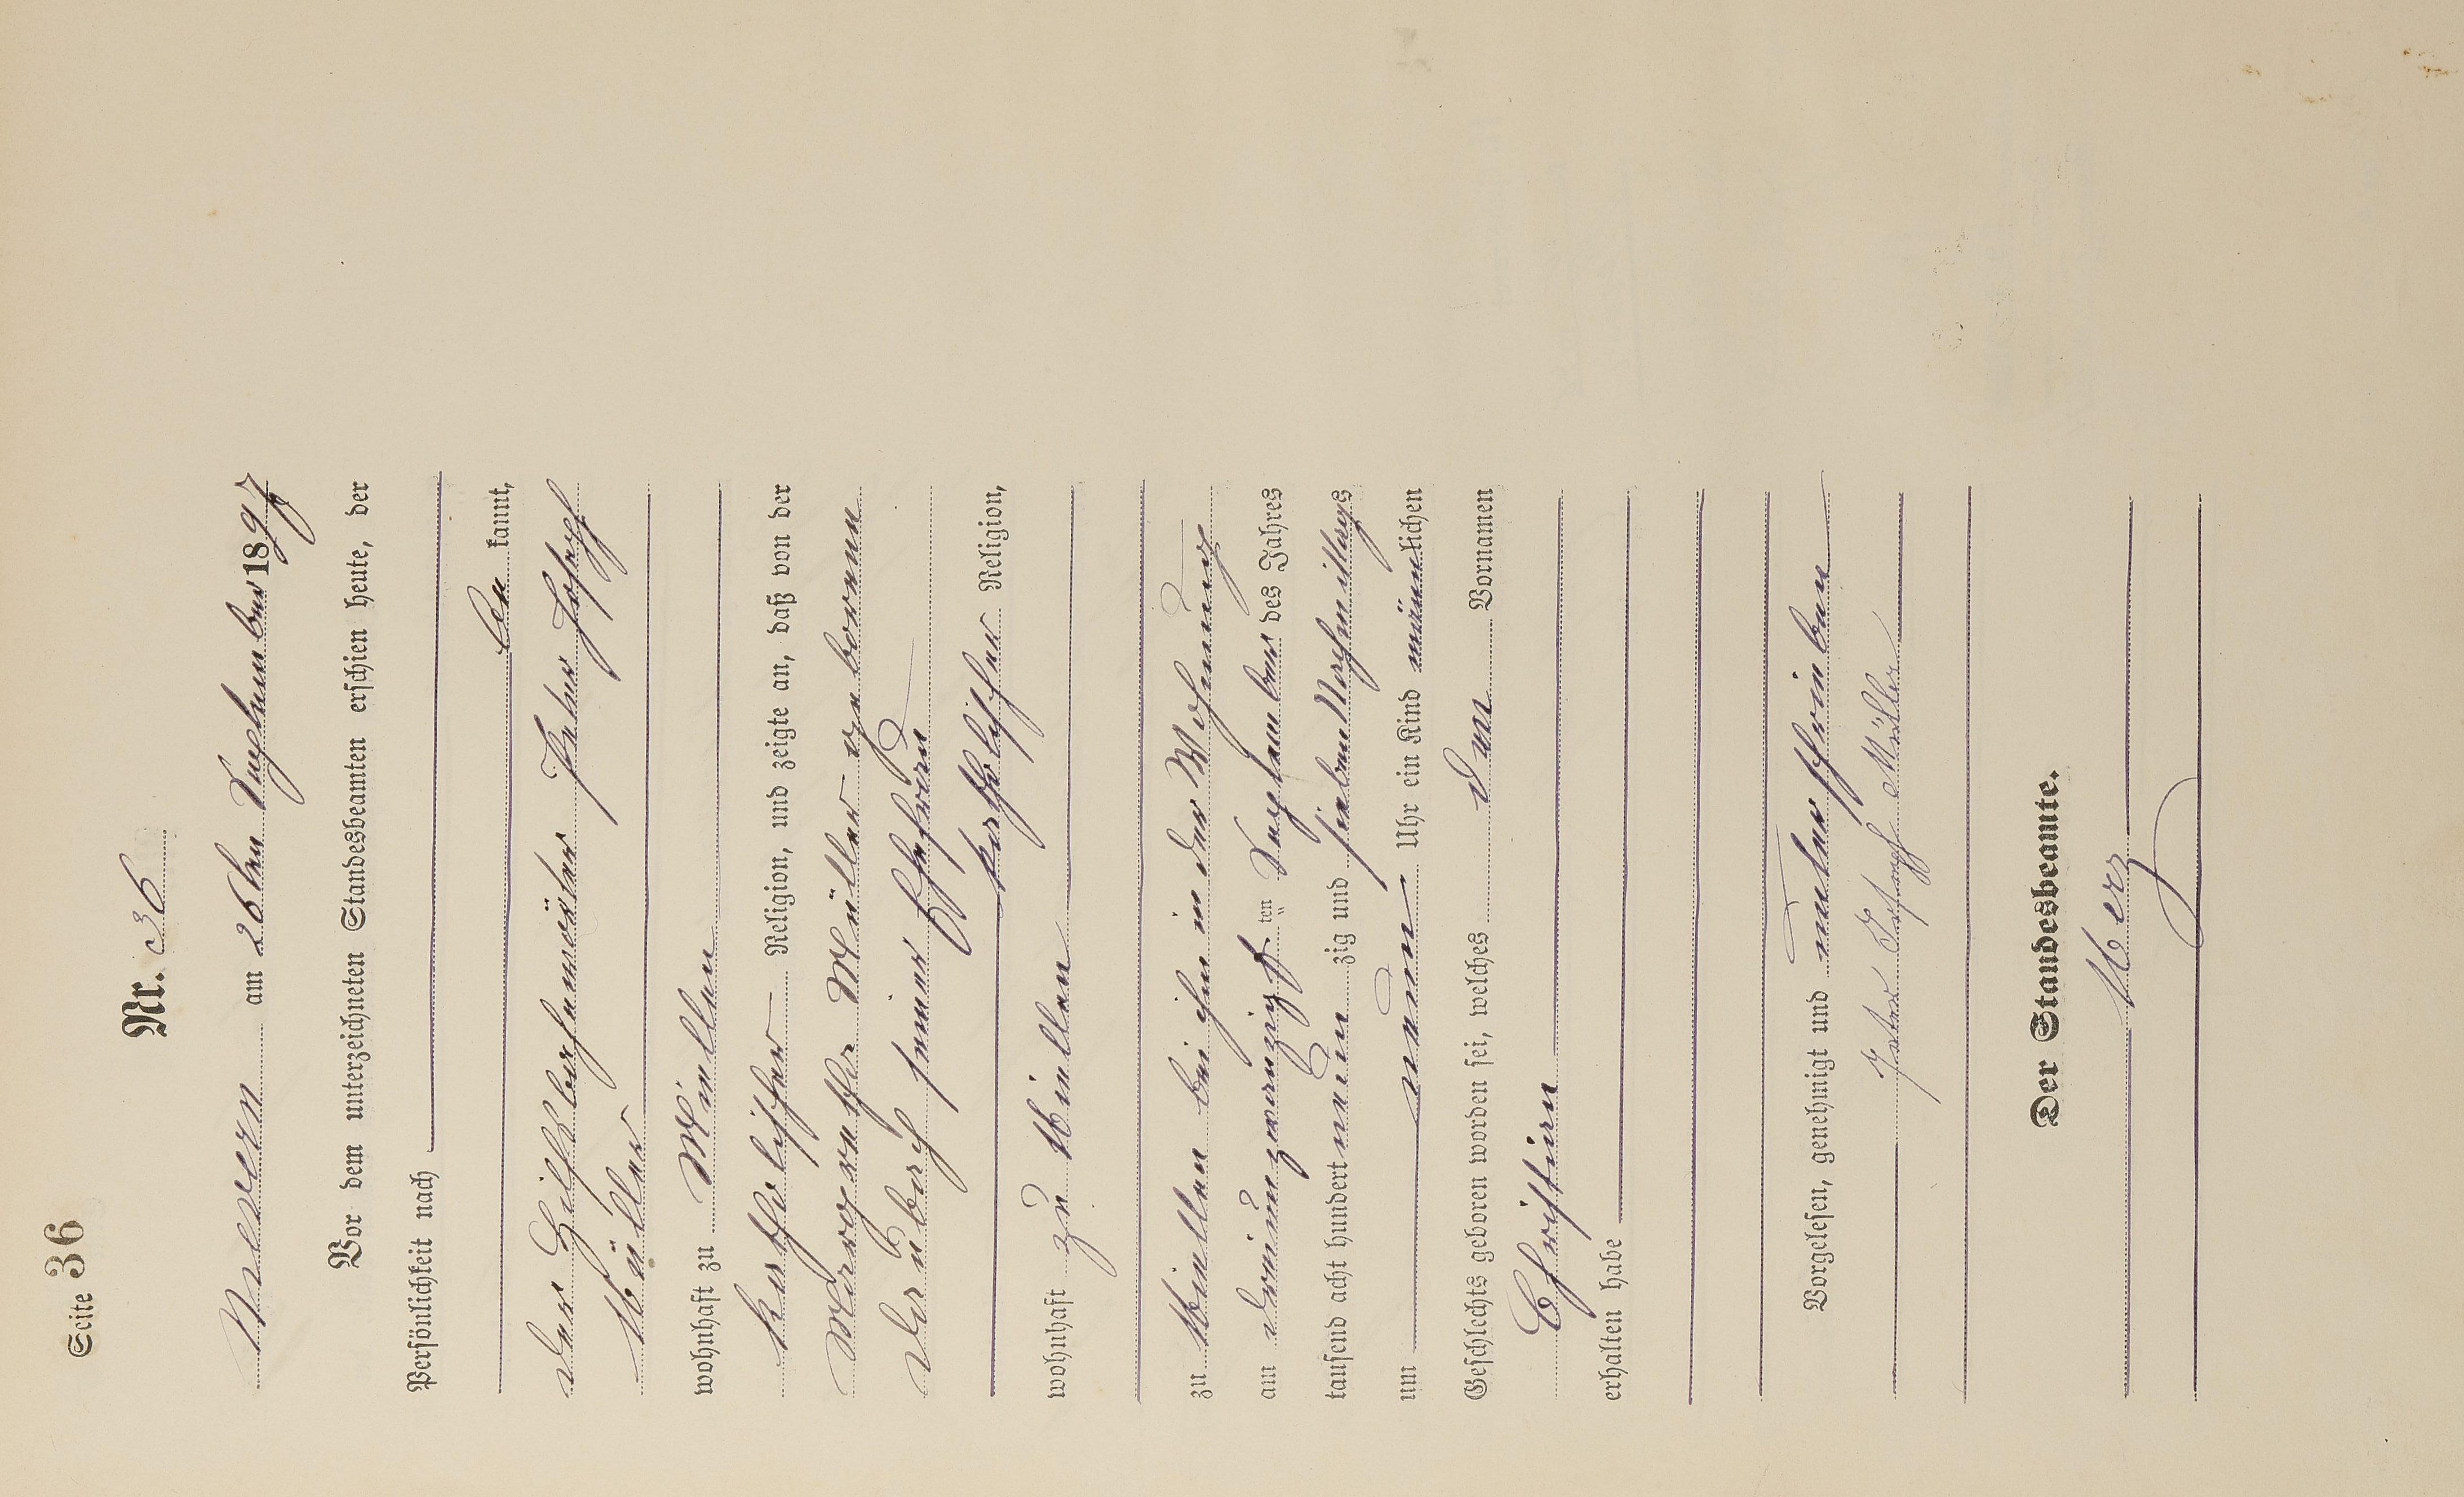 Seite 36
Nr. 36
Nievern am 26ten September 1897
Vor dem unterzeichneten Standesbeamten erschien heute, der
Persönlichkeit nach
be kannt,
der Hilfsbahnwärter Peter Joseph
Müller
wohnhaft zu Miellen
katholischer Religion, und zeigte an, daß von der
Margarethe Müller geborenen
seiner Ehefrau
katholischer Religion,
wohnhaft zu Miellen
zu Miellen bei ihm in der Wohnung
am dreiundzwanzigsten September des Jahres
tausend acht hundert neun zig und sieben Nachmittags
um neun Uhr ein Kind männlichen
Geschlechts geboren worden sei, welches den Vornamen
Christian
erhalten habe
Vorgelesen, genehmigt und unterschrieben
Peter Joseph Müller
Der Standesbeamte.
Merz